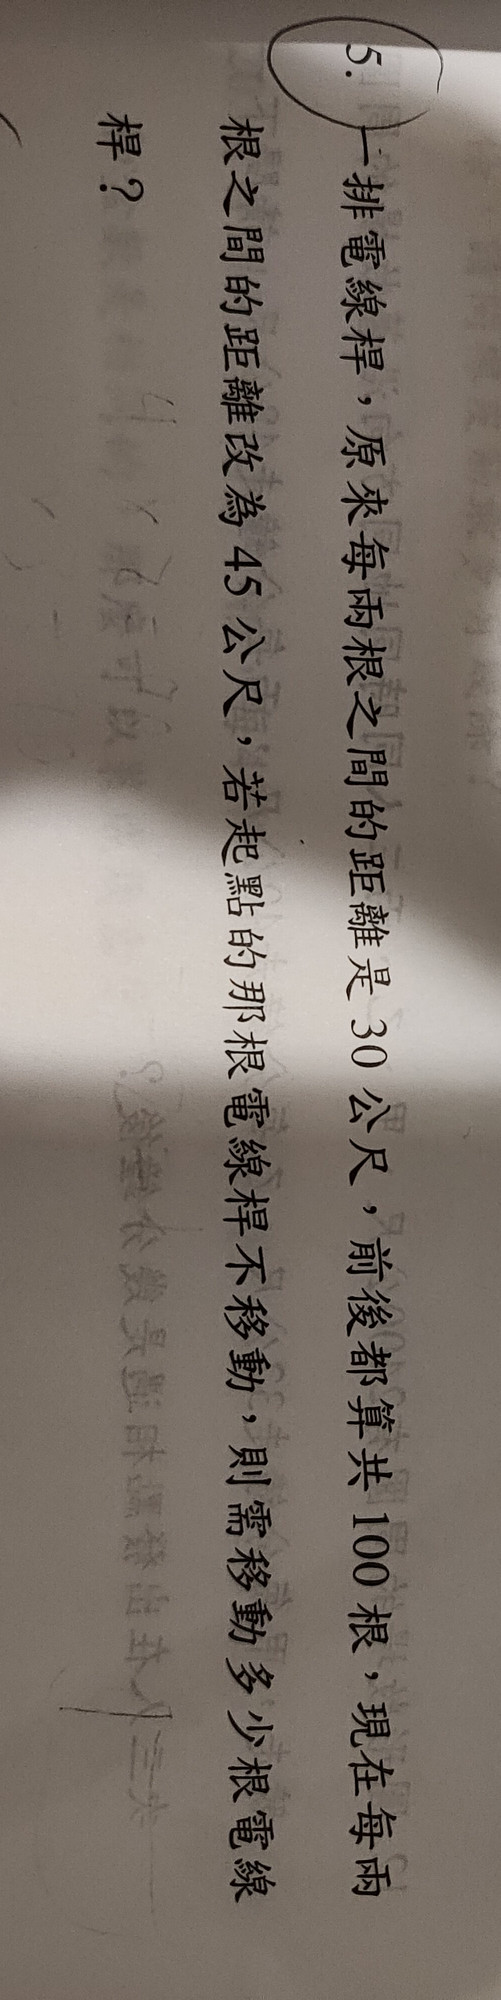 5. 一排電線桿，原來每兩根之間的距離是 30 公尺，前後都算共 100 根，現在每兩
根之間的距離改為 45 公尺，若起點的那根電線桿不移動，則需移動多少根電線
桿？